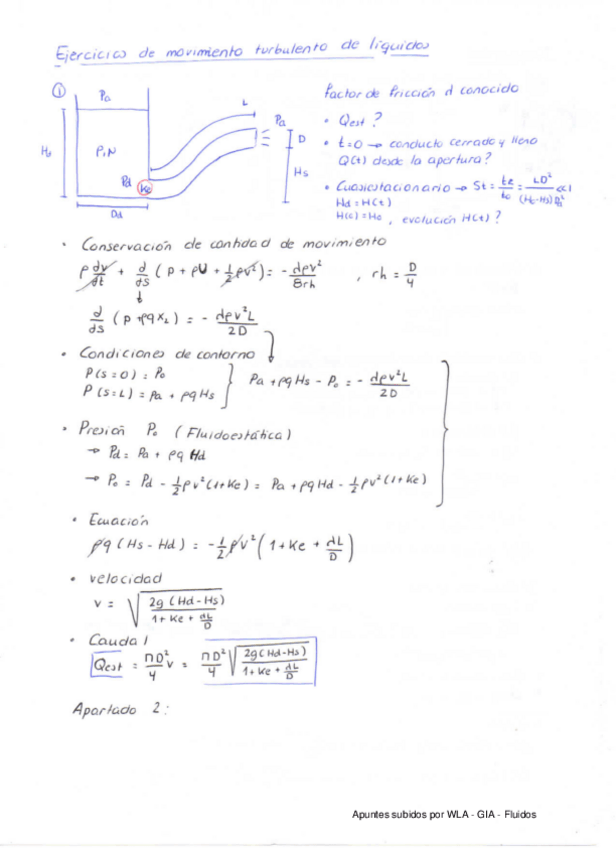 Ejercicios de movimiento turbulento de líquidos
①
Pa
L
Pa
D
Hs
P, N
Pd
Ke
Dd
Factor de fricción λ conocido
• Qest ?
• t=0 → conducto cerrado y lleno
Q(t) desde la apertura?
• Cuasiestacionario → St = te/to = LD²/(Ht-Hs)D²d ≪ 1
Hd = H(t)
H(0) = Ho, evolución H(t)?
• Conservación de cantidad de movimiento
ρ dv/dt + d/ds (P + ρU + ½ρv²) = - λρv²/8rh , rh = D/4
↓
d/ds (P + ρg x₂) = - λρv²L/2D
• Condiciones de contorno
P(s=0) = Po
P(s=L) = Pa + ρgHs
} Pa + ρgHs - Po = - λρv²L/2D
• Presión Po (Fluidoestática)
→ Pd = Pa + ρg Hd
→ Po = Pd - ½ρv²(1+Ke) = Pa + ρgHd - ½ρv²(1+Ke)
• Ecuación
ρg (Hs - Hd) = -½ρv² (1 + Ke + λL/D)
• velocidad
v = √(2g (Hd-Hs)/(1+Ke+λL/D))
• Caudal
Qest = ΠD²/4 v = ΠD²/4 √(2g(Hd-Hs)/(1+Ke+λL/D))
Apartado 2:
Apuntes subidos por WLA - GIA - Fluidos